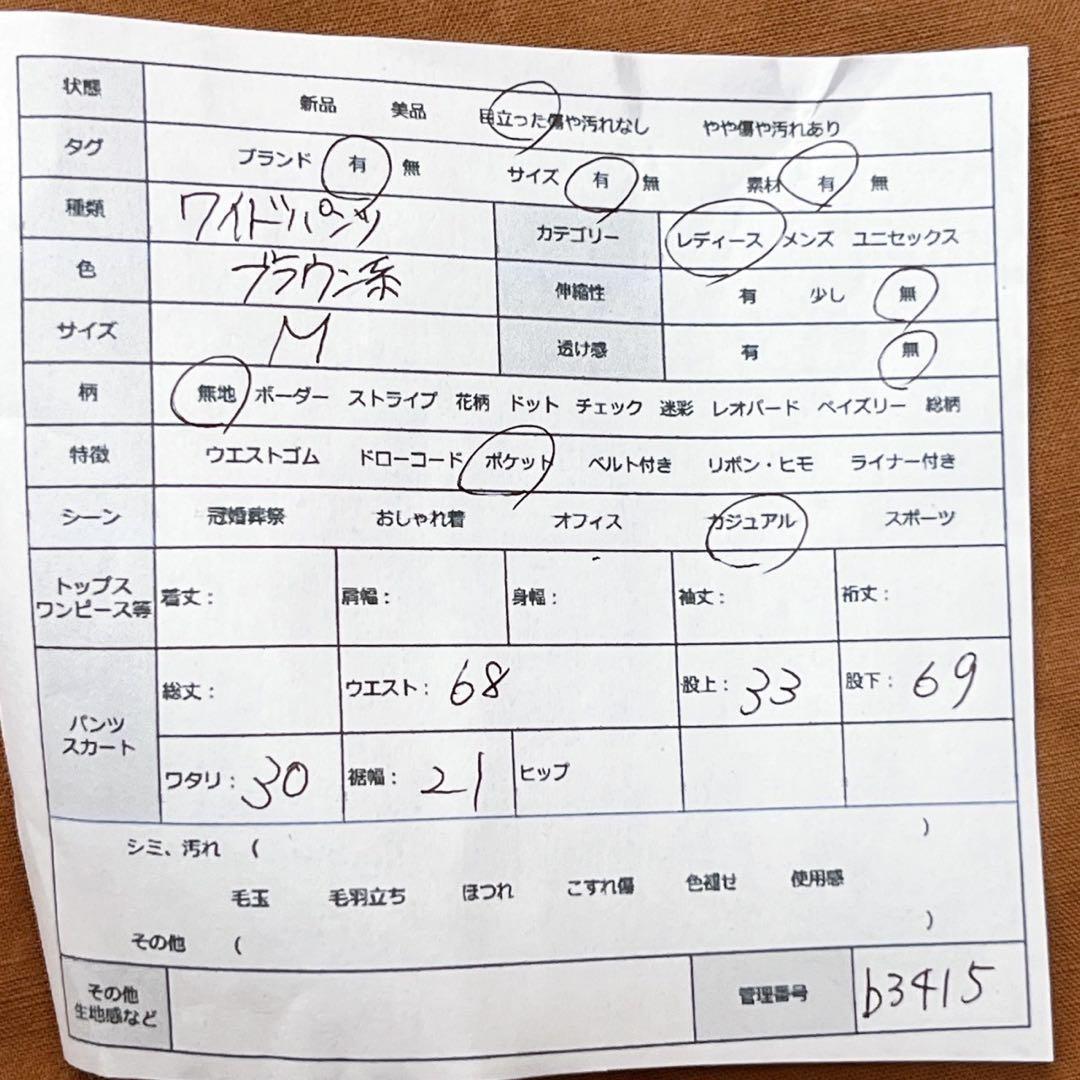 状態 新品 美品 目立った傷や汚れなし やや傷や汚れあり
タグ ブランド 有 無 サイズ 有 無 素材 有 無
種類 ワイドパンツ カテゴリー レディース メンズ ユニセックス
色 ブラウン系 伸縮性 有 少し 無
サイズ M 透け感 有 無
柄 無地 ボーダー ストライプ 花柄 ドット チェック 迷彩 レオパード ペイズリー 総柄
特徴 ウエストゴム ドローコード ポケット ベルト付き リボン・ヒモ ライナー付き
シーン 冠婚葬祭 おしゃれ着 オフィス カジュアル スポーツ
トップス
ワンピース等 着丈： 肩幅： 身幅： 袖丈： 裄丈：
パンツ
スカート
総丈： ウエスト：68 股上：33 股下：69
ワタリ：30 裾幅：21 ヒップ
シミ、汚れ ( )
毛玉 毛羽立ち ほつれ こすれ傷 色褪せ 使用感
その他 ( )
その他
生地感など
管理番号 b3415